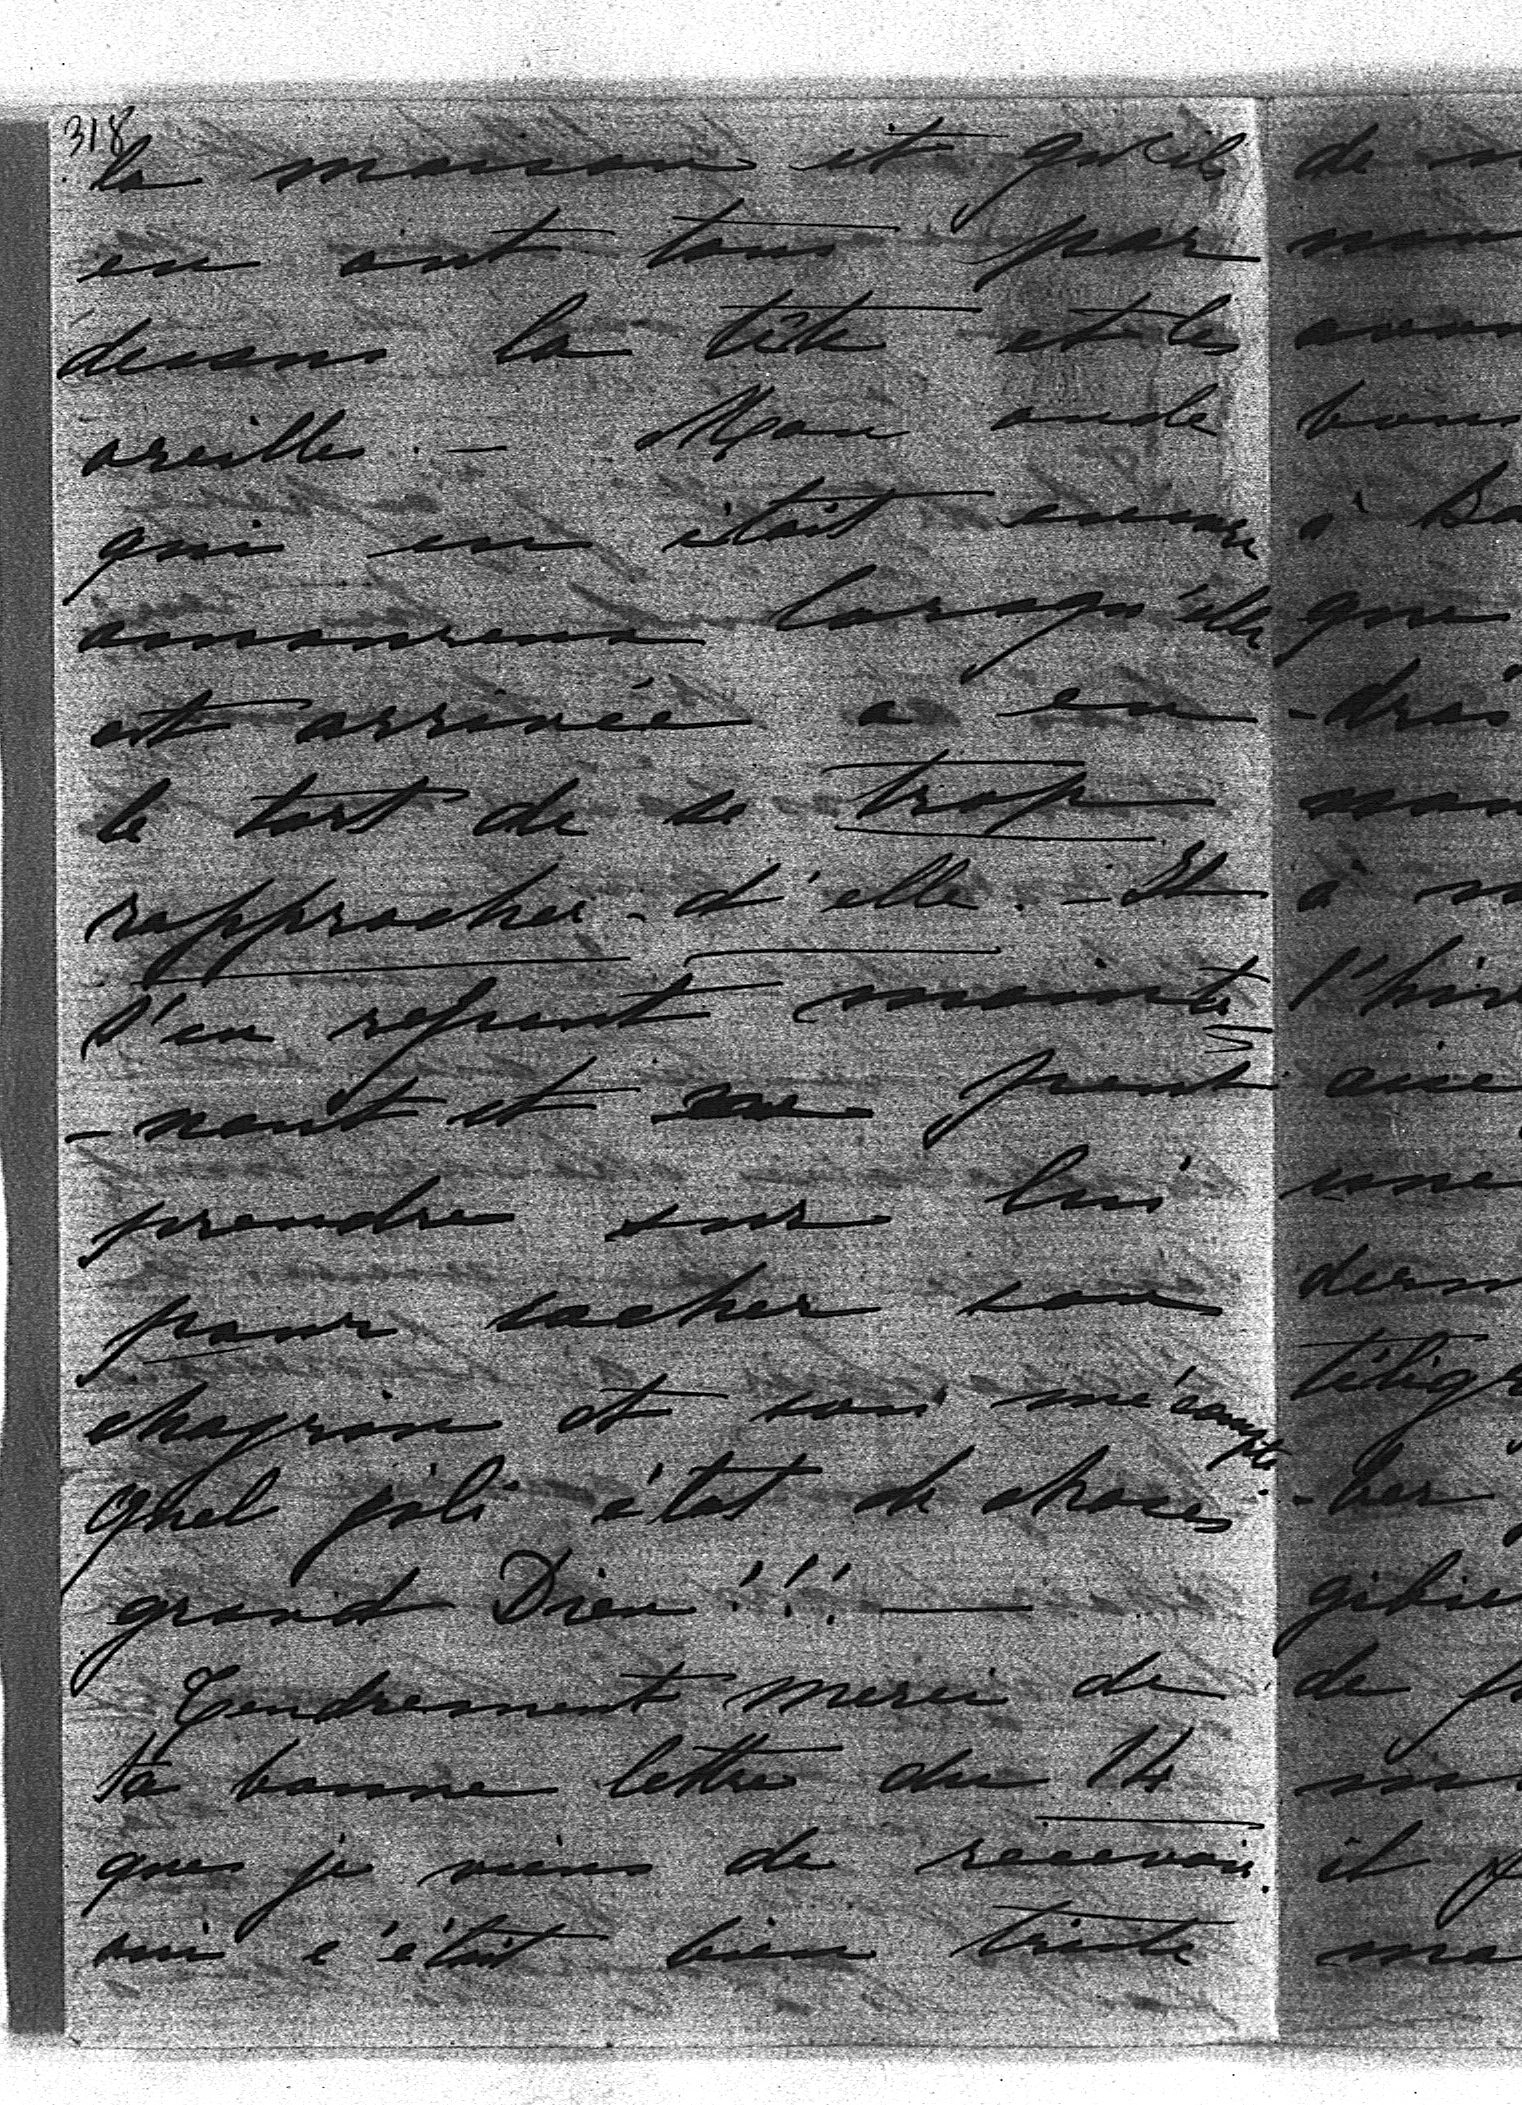 318
la maison et qu'ils
en ont tous par
dessus la tête et les
oreilles. — Mon oncle
qui en était encore
amoureux lorsqu'elle
est arrivée a eu
le tort de se trop
rapprocher d'elle. — Il
s'en repent mainte
- nant et ne peut
prendre sur lui
pour cacher son
chagrin et son mécompte
Quel joli état de choses
grand Dieu!!! —
Tendrement merci de
ta bonne lettre du 14
que je viens de recevoir.
oui c'était bien triste
de
à
que
à
l'hiv
une
-ber
de
il